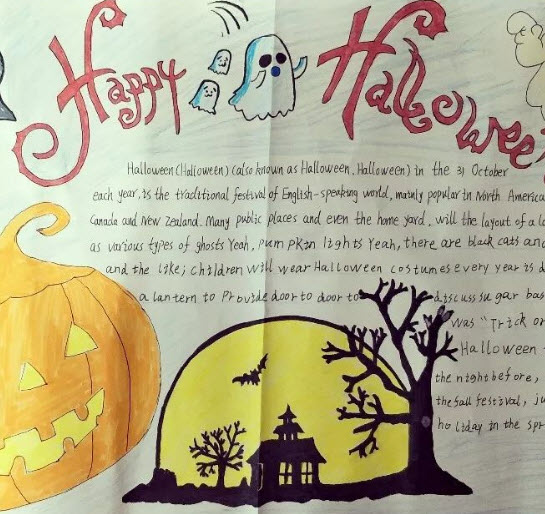 Happy Hallowee
Halloween (Halloween) (also known as Halloween, Halloween) in the 31 October
each year, is the traditional festival of English-speaking world, mainly popular in North America
Canada and New Zealand. Many public places and even the home yard, will the layout of a lo
as various types of ghosts Yeah, pumpkin lights Yeah, there are black cats and
and the like; children will wear Halloween costumes every year is d
a lantern to Provide door to door to discuss sugar bas
was "Trick or
Halloween
the night before,
the fall festival, ju
holiday in the spr